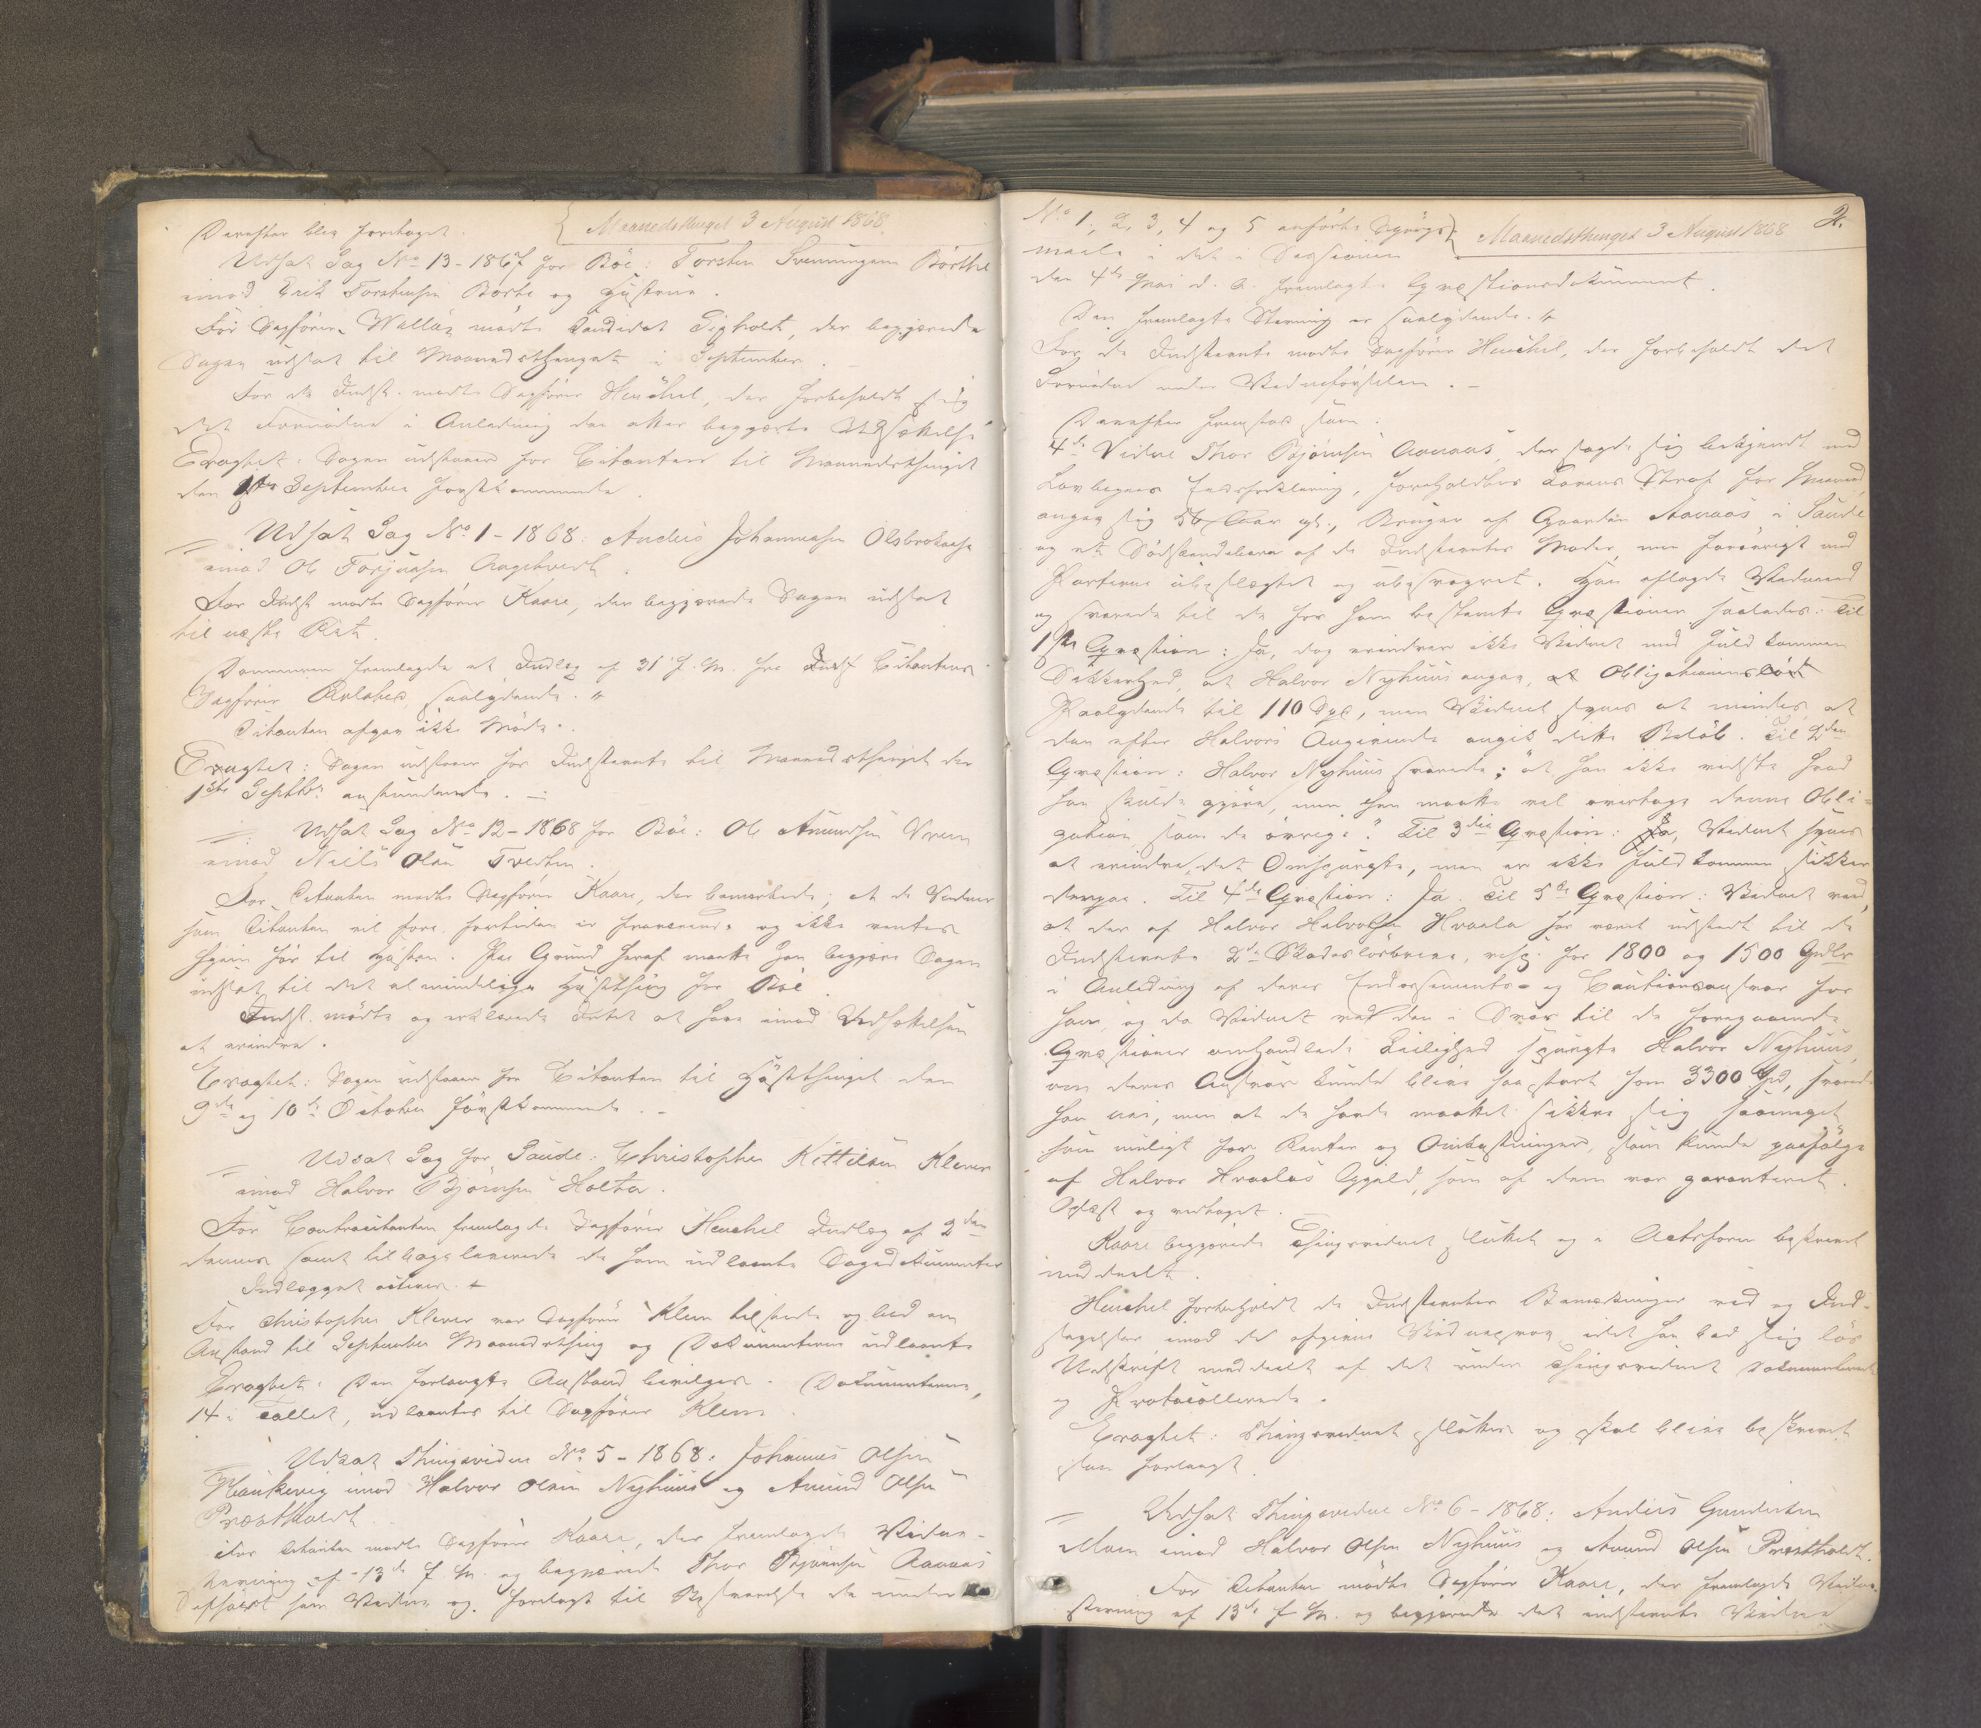 Maanedsthinget 3 August 1868.
Derefter blev foretaget.
Udsat Sag No 13 - 1867 for Böe: Torsten Svenningsen Börthe
imod Erik Torstensen Börte og Hustrue.
For Sagförer Walløe mødte Kandidat Gigholdt, der begjærede
Sagen udsat til Maanedsthinget i September.
For de Indst. mødte Sagförer Heuchel, der forbeholdt sig
det Fornødne i Anledning den atter begjærte Udsættelse
Eragtet: Sagen udstaaer for Citanten til Maanedsthinget
den 1ste September førstkommende.
Udsat Sag No 1 - 1868: Anders Johannesen Olsbrokaasa
imod Ole Torjusen Aagetveit.
For Indst. mødte Sagförer Kaare, der begjærede Sagen udsat
til næste Ret.
Dommeren fremlagde et Indlæg af 31 f. M. fra Citantens
Sagfører, saalydende.
Citanten afgav ikke Møde.
Eragtet: Sagen udstaaer for Indstevnte til Maanedsthinget den
1ste Septbr. anstundende.
Udsat Sag No 12 - 1868 for Böe: Ole Amundsen Vreim
imod Niels Olsen Tveten.
For Citanten mødte Sagförer Kaare, der bemærkede; at de Vidner
som Citanten vil føre, fortiden er fraværende og ikke ventes
hjem før til Høsten. Paa Grund heraf maatte han begjære Sagen
udsat til det almindelige Høstthing for Böe.
Indst. mødte og erklærede Intet at have imod Udsættelsen
at erindre.
Eragtet: Sagen udstaaer for Citanten til Høstthinget den
9de og 10de October førstkommende.
Udsat Sag for Saude: Christopher Kittilsen Klever
imod Halvor Bjørnsen Holta.
For Contracitanten fremlagde Sagfører Heuchel Indlæg af 2den
dennes samt tilbageleverede de ham udlaante Sagsdokumenter
Indlægget acteres.
For Christopher Klever var Sagfører Klem tilstede og bad om
Anstand til September Maanedsthing og Dokumenterne udlaante
Eragtet: Den forlangte Anstand bevilges. Dokumenterne,
14 i Tallet, udlaantes til Sagfører Klem.
Udsat Thingsvidne No 5 - 1868: Johannes Olsen
Haukevig imod Halvor Olsen Nyhuus og Amund Olsen
Præstholdt.
For Citanten mødte Sagfører Kaare, der fremlagde Vidne-
stevning af 13de f. M. og begjærede Thor Bjørnsen Aanaas
afhørt som Vidne og forelagt til Besvarelse de under
2.
Maanedsthinget 3 August 1868
No 1, 2, 3, 4 og 5 anførte Spørgs-
maale i det i Sessionen
den 4de Mai d. A. fremlagte Qvæstionsdokument.
Den fremlagte Stevning er saalydende.
For de Indstevnte mødte Sagfører Heuchel, der forbeholdt det
Fornødne under Vidneførselen.
Derefter fremstod som:
4de Vidne Thor Bjørnsen Aanaas, der sagde sig bekjendt med
Lovbogens Eedsforklaring, foreholdtes Lovens Straf for Meeneed,
angav sig 56 Aar gl., Bruger af Gaarden Aanaas i Saude
og et Sødskendebarn af de Indstevntes Moder, men forøvrigt med
Parterne ubeslægtet og ubesvogret. Han aflagde Vidneeed
og svarede til de for ham bestemte Qvæstioner saaledes: Til
1ste Qvæstion: Ja, dog erindrer ikke Vidnet med fuldkommen
Sikkerhed, at Halvor Nyhuus angav, at Obligationen lød
Paalydende til 110 Spd, men Vidnet synes at mindes at
den efter Halvors Angivende angik dette Beløb. Til 2den
Qvæstion: Halvor Nyhuus svarede; at han ikke vidste hvad
han skulde gjøre, men han maatte vel overtage denne Obli-
gation som de øvrige? Til 3die Qvæstion: Ja, Vidnet synes
at erindre det Omspurgte, men er ikke fuldkommen sikker
derpaa. Til 4de Qvæstion: Ja. Til 5te Qvæstion: Vidnet ved,
at der af Halvor Halvorsen Hvaala har været udstedt til de
Indstevnte 2de Skadesløsbreve, resp. for 1800 og 1500 Spdlr
i Anledning af deres Endossements- og Cautionsansvar for
ham, og da Vidnet ved den i Svar til de foregaaende
Qvæstioner omhandlede Leilighed spurgte Halvor Nyhuus,
om deres Ansvar kunde blive saa stort som 3300 Spd, svarede
han nei, men at de havde maattet sikkre sig saameget
som muligt for Renter og Omkostninger, som kunde paafølge
af Halvor Hvaalas Gjæld, som af dem var garanteret.
Oplæst og vedtaget.
Kaare begjærede Thingsvidnet sluttet og i Actsform beskrevet
meddeelt.
Heuchel forbeholdt de Indstevntes Bemærkninger ved og Ind-
sigelser imod det afgivne Vidneprov, idet han bad sig løs
Udskrift meddeelt af det under Thingsvidnet Dokumenterede
og Protocollerede.
Eragtet: Thingsvidnet sluttes og skal blive beskrevet
som forlangt.
Udsat Thingsvidne No 6 - 1868: Anders Gundersen
Moen imod Halvor Olsen Nyhuus og Amund Olsen Præstholdt.
For Citanten mødte Sagfører Kaare, der fremlagde Vidne-
stevning af 13de f. M. og begjærede det indstevnte Vidne